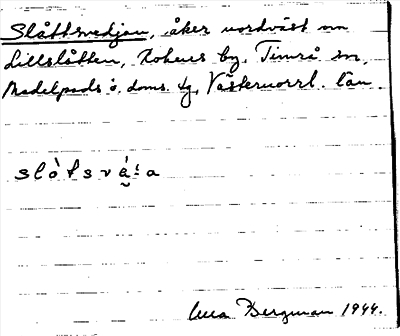 Slåttsvedjan, åker nordväst om
Lillslåtten, by, Timrå sn,
Medelpads ö. doms. tg, Västernorrl. län.
Bergman 1944.